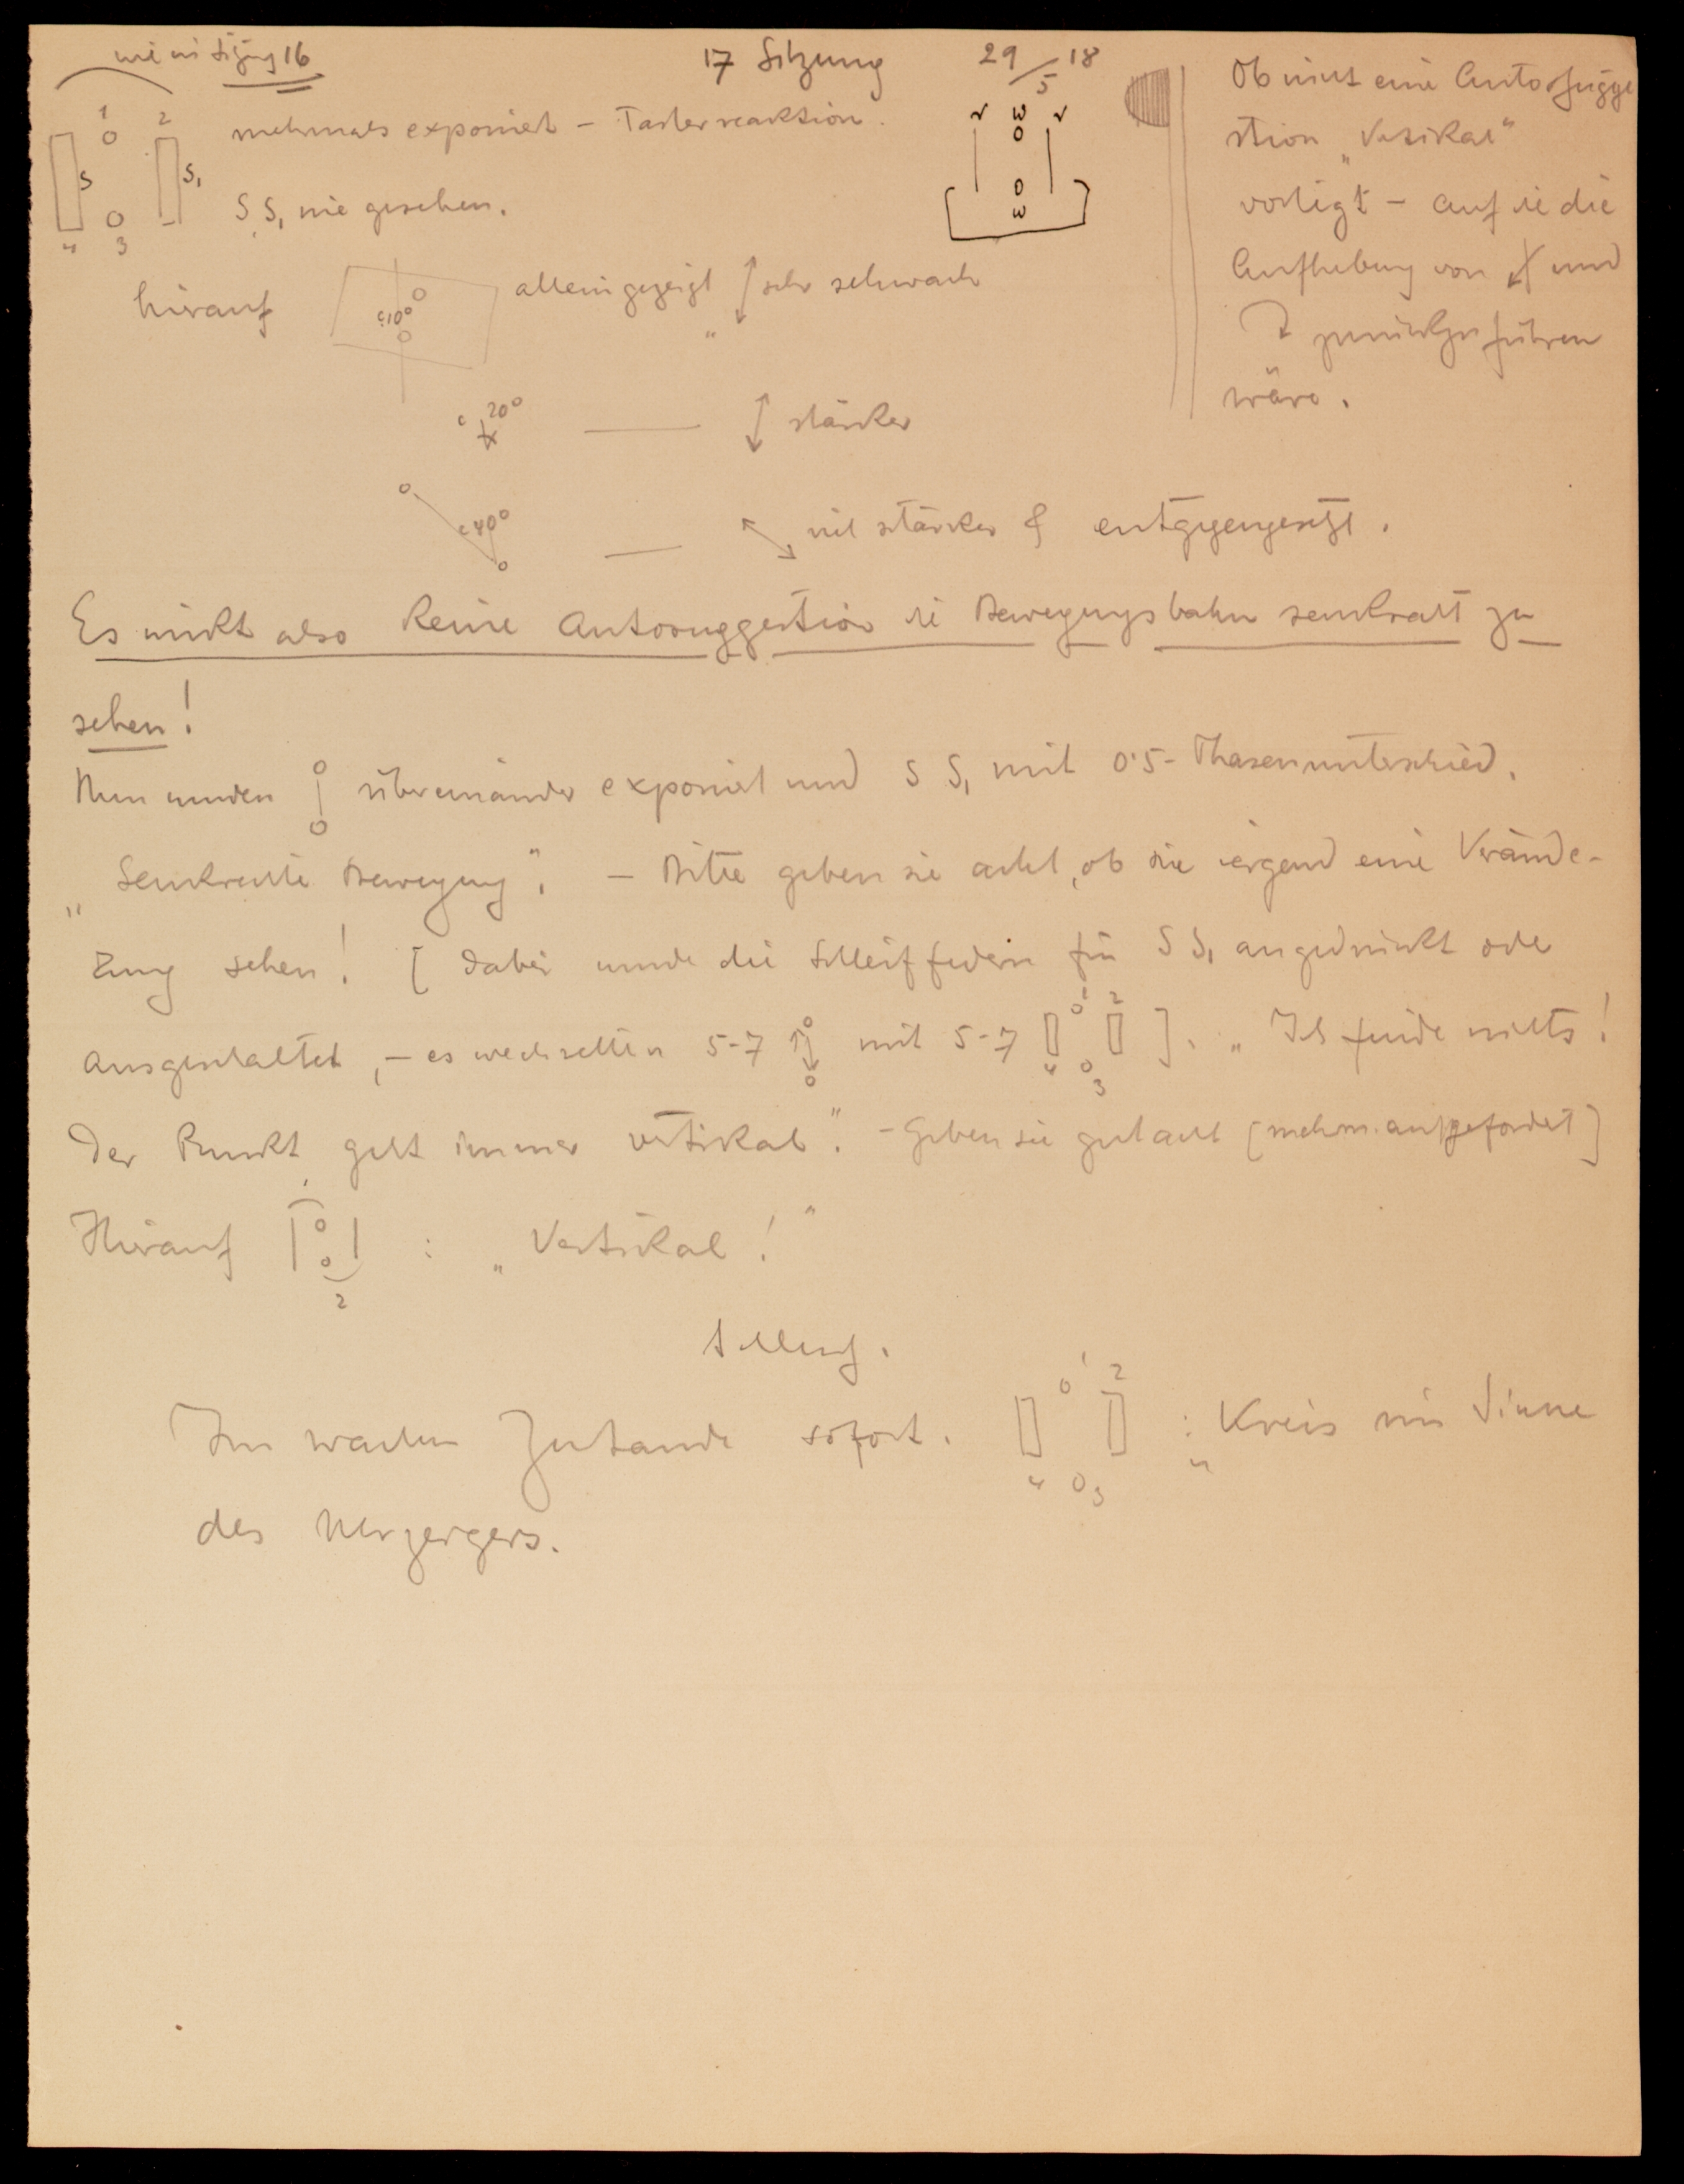 wie in Sitzung 16
17 Sitzung 29/5 18
1 2
S S₁
4 3
mehrmals exponiert – Tasterreaktion.
S S₁ nie gesehen.
r 3 0 r
0 3
Ob nicht eine Autosugge
stion „Vertikal“
vorliegt – auf die die
Aufhebung von und
zurückzuführen
wäre.
hierauf c. 10° allein gezeigt „ sehr schwach
c 20° — stärker
c 40° — viel stärker & entgegengesetzt.
Es wirkt also keine Autosuggestion die Bewegungsbahn senkrecht zu
sehen!
Nun wurden übereinander exponiert und S S₁ mit 0·5- Phasenunterschied.
„Senkrechte Bewegung“. – Bitte geben sie acht, ob sie irgend eine Verände-
rung sehen! [ dabei wurde die Schleiffedern für S S₁ angedrückt oder
ausgeschaltet, – es wechselten 5-7 mit 5-7 1 2 4 3 ]. „Ich finde nichts!
Der Punkt geht immer vertikal“. – Geben sie gut acht [mehrm. aufgefordert]
Hierauf 1 2 : „Vertikal!“
Schluss.
Im wachen Zustande sofort. 1 2 4 3 : „Kreis im Sinne
des Uhrzeigers.